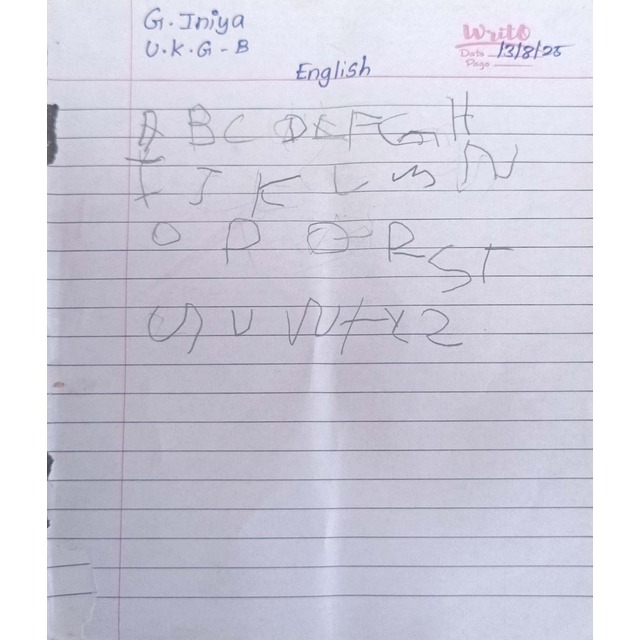 G. Iniya
U.K.G - B
Write
Date 13/8/25
Page
English
A B C D E F G H
I J K L M N
O P Q R S T
U V W X Y Z